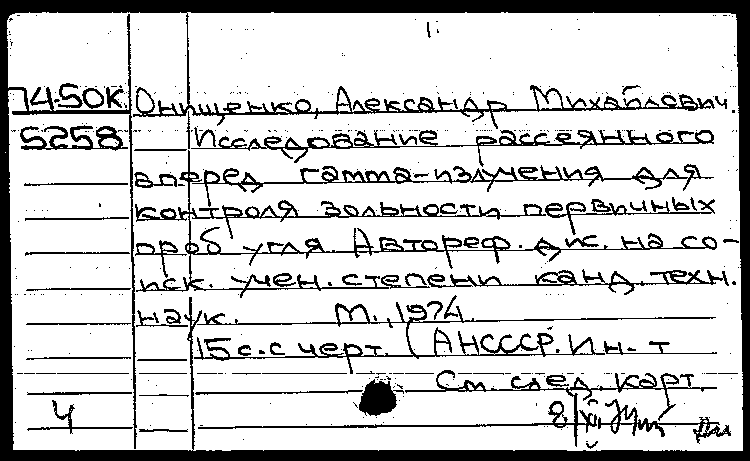 74-50К Онищенко, Александр Михайлович.
5258 Исследование рассеянного
вперед гамма-излучения для
контроля зольности первичных
проб угля. Автореф. дис. на со-
иск. учен. степени канд. техн.
наук. М., 1974.
15 с. с черт. (АН СССР. Ин-т
См. след. карт.
4